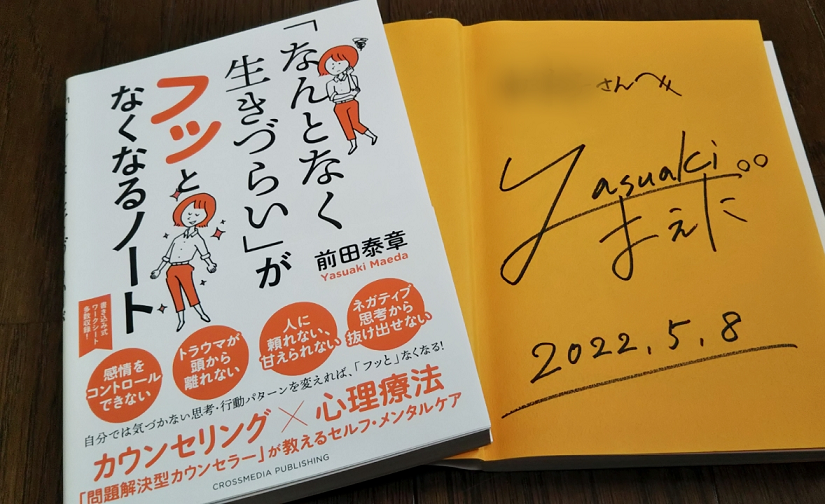 「なんとなく
生きづらい」が
フッと
なくなるノート
前田泰章
Yasuaki Maeda
書き込み式
ワークシート
多数収録！
感情を
コントロール
できない
トラウマが
頭から
離れない
人に
頼れない、
甘えられない
ネガティブ
思考から
抜け出せない
自分では気づかない思考・行動パターンを変えれば、「フッと」なくなる！
カウンセリング×心理療法
「問題解決型カウンセラー」が教えるセルフ・メンタルケア
CROSSMEDIA PUBLISHING
さんへ
Yasuaki
まえだ
2022.5.8